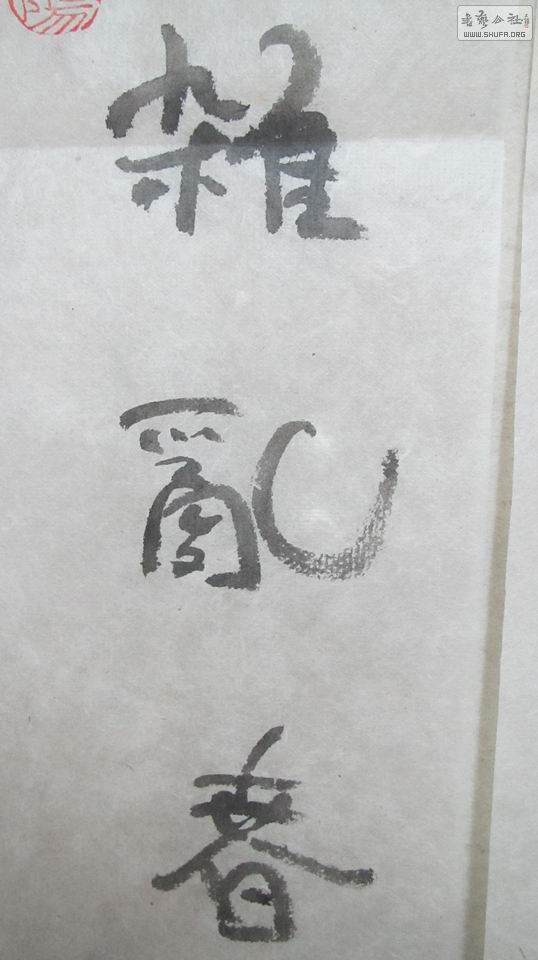 雜亂春
书艺公社
WWW.SHUFA.ORG